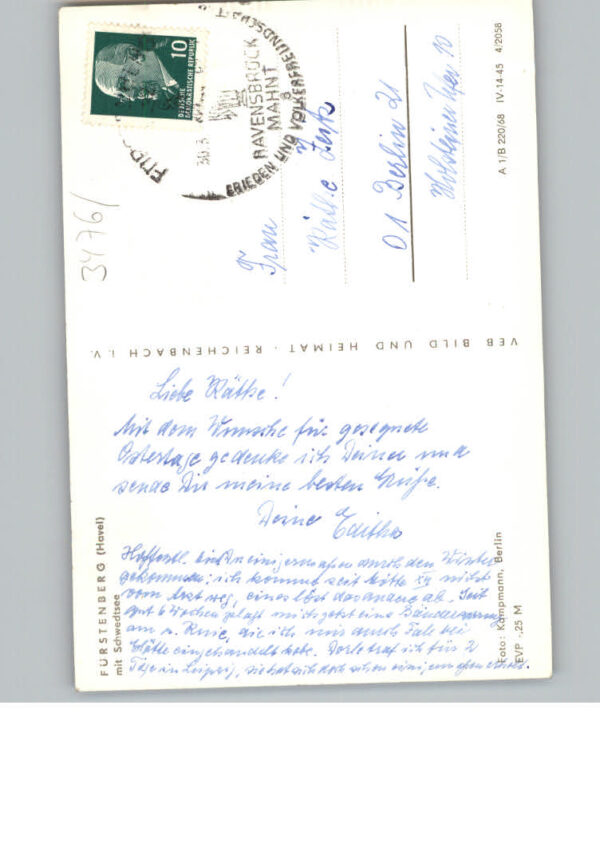 10
DEUTSCHE
DEMOKRATISCHE REPUBLIK
RAVENSBRÜCK
MAHNT
FRIEDEN UND VÖLKERFREUNDSCHAFT
30.3
3476/
Frau
Käthe
01 Berlin 21
Holsteiner Ufer 10
A 1/B 220/68 IV-14-45 4/2058
VEB BILD UND HEIMAT · REICHENBACH i. V.
Liebe Käthe!
Mit dem Wunsche für gesegnete
Ostertage gedenke ich Deiner und
sende Dir meine besten Grüße.
Deine Editha
Hoffentl. bist Du einigermaßen durch den Winter
gekommen; ich komme seit Mitte XII nicht
vom Arzt weg, eines löst das andere ab. Seit
gut 6 Wochen plagt mich jetzt eine
am r. Knie, die ich mir durch Fall bei
Glätte eingehandelt habe. traf ich für 2
Tage in Leipzig, sie hat sich doch schon einigermaßen
FÜRSTENBERG (Havel)
mit Schwedtsee
Foto: Kampmann, Berlin
EVP -,25 M